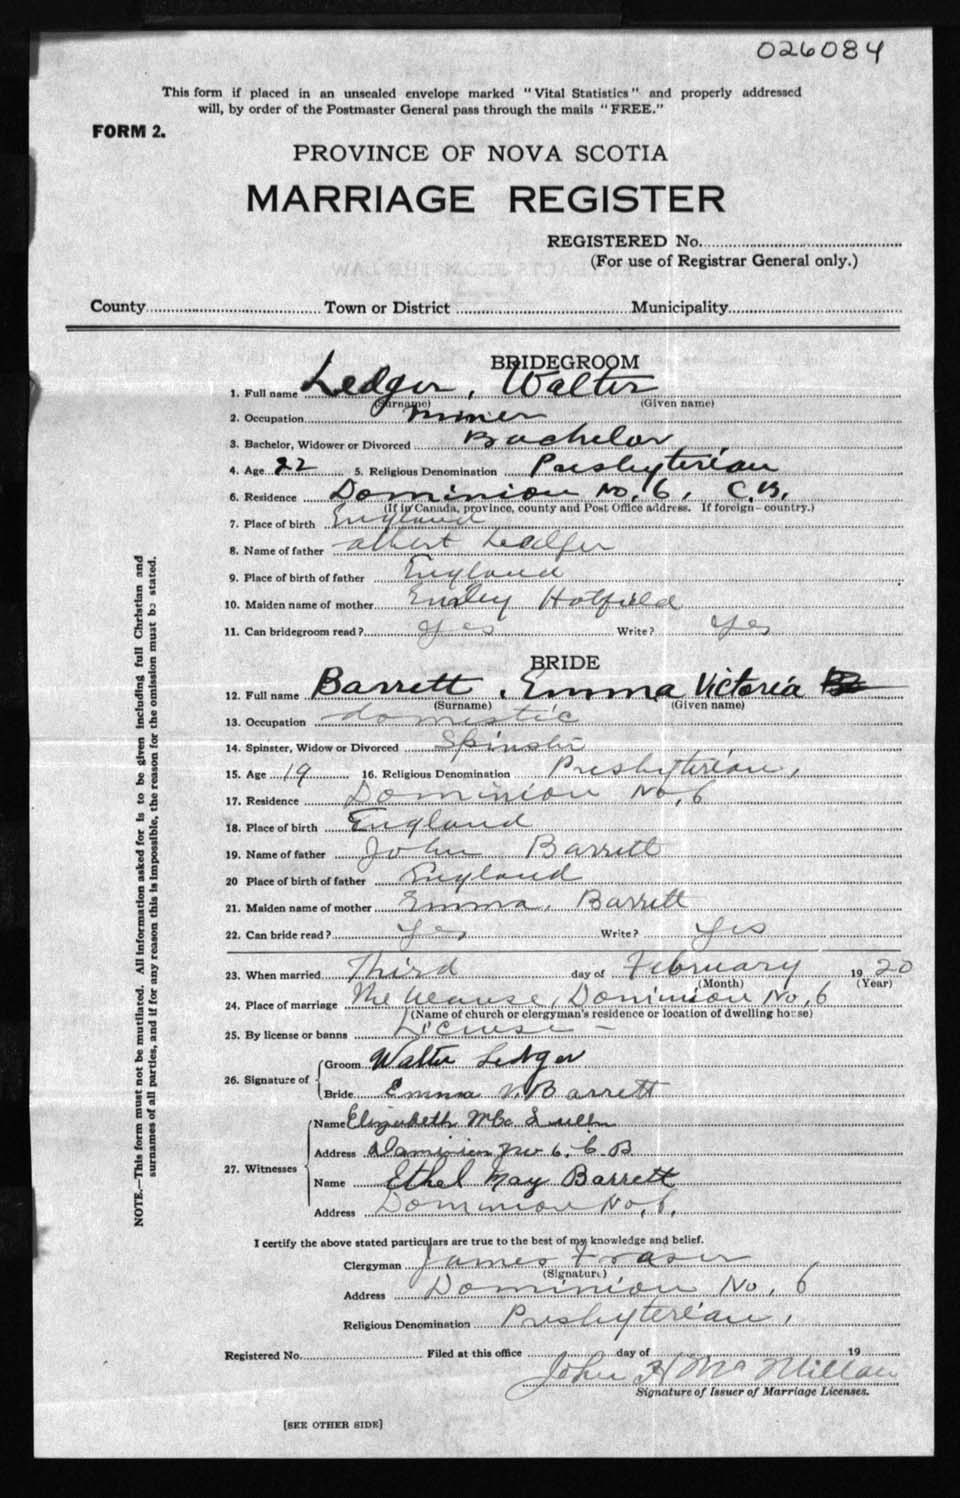 026084
This form if placed in an unsealed envelope marked "Vital Statistics" and properly addressed
will, by order of the Postmaster General pass through the mails "FREE."
FORM 2.
PROVINCE OF NOVA SCOTIA
MARRIAGE REGISTER
REGISTERED No.
(For use of Registrar General only.)
County Town or District Municipality
BRIDEGROOM
1. Full name Ledger, Walter
(Surname) (Given name)
2. Occupation Miner
3. Bachelor, Widower or Divorced Bachelor
4. Age 22 5. Religious Denomination Presbyterian
6. Residence Dominion No. 6, C.B.
(If in Canada, province, county and Post Office address. If foreign—country.)
7. Place of birth England
8. Name of father Albert Ledger
9. Place of birth of father England
10. Maiden name of mother Hatfield
11. Can bridegroom read? yes Write? yes
BRIDE
12. Full name Barrett, Emma Victoria
(Surname) (Given name)
13. Occupation domestic
14. Spinster, Widow or Divorced Spinster
15. Age 19 16. Religious Denomination Presbyterian,
17. Residence Dominion No, 6
18. Place of birth England
19. Name of father John Barrett
20 Place of birth of father England
21. Maiden name of mother Emma, Barrett
22. Can bride read? yes Write? yes
23. When married Third day of February 1920
(Month) (Year)
24. Place of marriage The Manse, Dominion No, 6
(Name of church or clergyman's residence or location of dwelling house)
25. By license or banns License -
26. Signature of Groom Walter Ledger
Bride Emma V. Barrett
27. Witnesses Name Elizabeth
Address Dominion No 6. C B
Name Ethel May Barrett
Address Dominion No, 6,
I certify the above stated particulars are true to the best of my knowledge and belief.
Clergyman James Fraser
(Signature)
Address Dominion No, 6
Religious Denomination Presbyterian,
Registered No. Filed at this office day of 19
John H McMillan
Signature of Issuer of Marriage Licenses.
[SEE OTHER SIDE]
NOTE.—This form must not be mutilated. All information asked for is to be given including full Christian and
surnames of all parties, and if for any reason this is impossible, the reason for the omission must be stated.